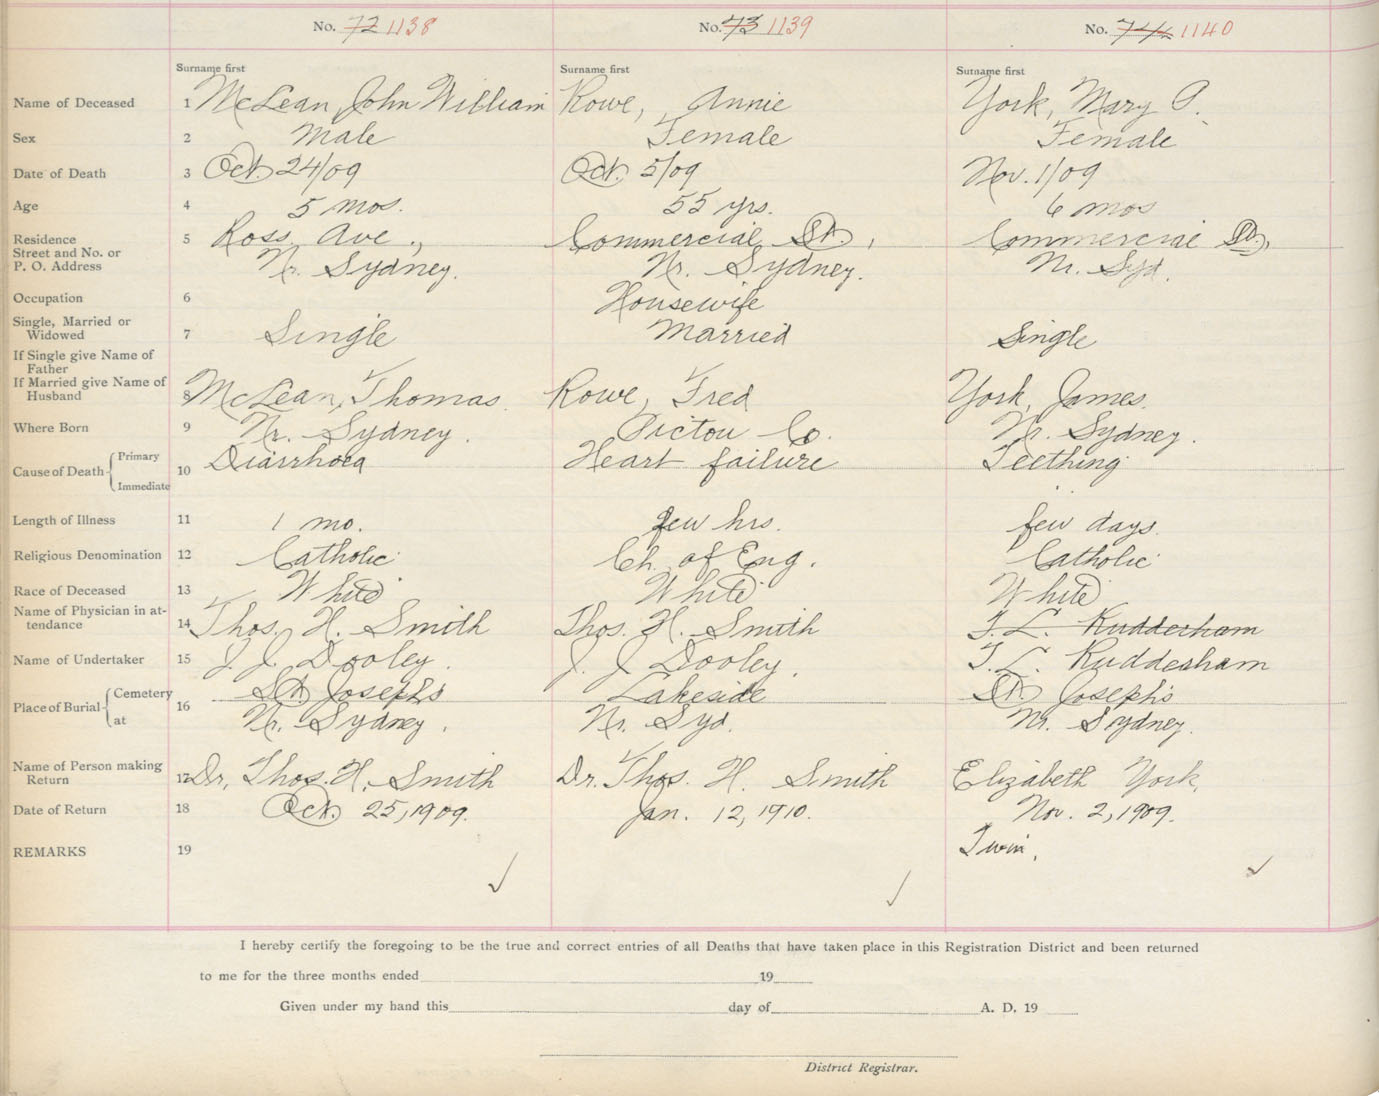 No. 72 1138 No. 73 1139 No. 74 1140
Surname first Surname first Surname first
Name of Deceased 1 McLean, John William Rowe, Annie York, Mary P.
Sex 2 Male Female Female
Date of Death 3 Oct. 24/09 Oct. 5/09 Nov. 1/09
Age 4 5 mos. 55 yrs. 6 mos
Residence 5 Ross Ave., Commercial St., Commercial St.,
Street and No. or
P. O. Address Nr. Sydney. Nr. Sydney. Nr. Syd.
Occupation 6 Housewife
Single, Married or
Widowed 7 Single Married Single
If Single give Name of
Father
If Married give Name of
Husband 8 McLean, Thomas. Rowe, Fred York, James.
Where Born 9 Nr. Sydney. Pictou Co. Nr. Sydney.
Cause of Death Primary 10 Diarrhoea Heart failure Teething
Immediate
Length of Illness 11 1 mo. few hrs. few days.
Religious Denomination 12 Catholic Ch. of Eng. Catholic
Race of Deceased 13 White White White
Name of Physician in at-
tendance 14 Thos. H. Smith Thos. H. Smith T. L. Rudderham
Name of Undertaker 15 J. J. Dooley. J. J. Dooley. T. L. Rudderham
Place of Burial Cemetery 16 St. Joseph's Lakeside St. Joseph's
at Nr. Sydney. Nr. Syd. Nr. Sydney.
Name of Person making
Return 17 Dr. Thos. H. Smith Dr. Thos. H. Smith Elizabeth York,
Date of Return 18 Oct. 25, 1909. Jan. 12, 1910. Nov. 2, 1909.
REMARKS 19 Twin.
I hereby certify the foregoing to be the true and correct entries of all Deaths that have taken place in this Registration District and been returned
to me for the three months ended 19
Given under my hand this day of A. D. 19
District Registrar.